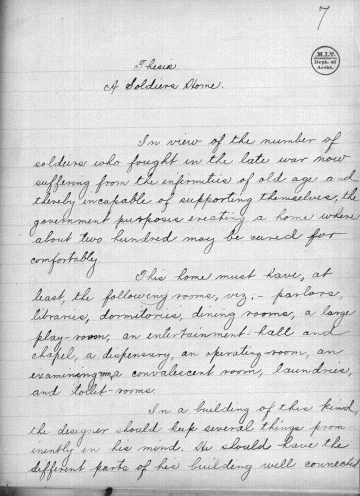 7
M.I.T.
Dept. of
Archt.
Thesis
A Soldiers Home.
In view of the number of
soldiers who fought in the late war now
suffering from the infirmities of old age and
thereby incapable of supporting themselves, the
government purposes creating a home where
about two hundred may be cared for
comfortably
This home must have, at
least, the following rooms, viz, - parlors,
libraries, dormitories, dining rooms, a large
play-room, an entertainment-hall and
chapel, a dispensary, an operating-room, an
examining rm, a convalescent room, laundries,
and toilet-rooms.
In a building of this kind,
the designer should keep several things prom-
inently in his mind. He should have the
different parts of his building well connected